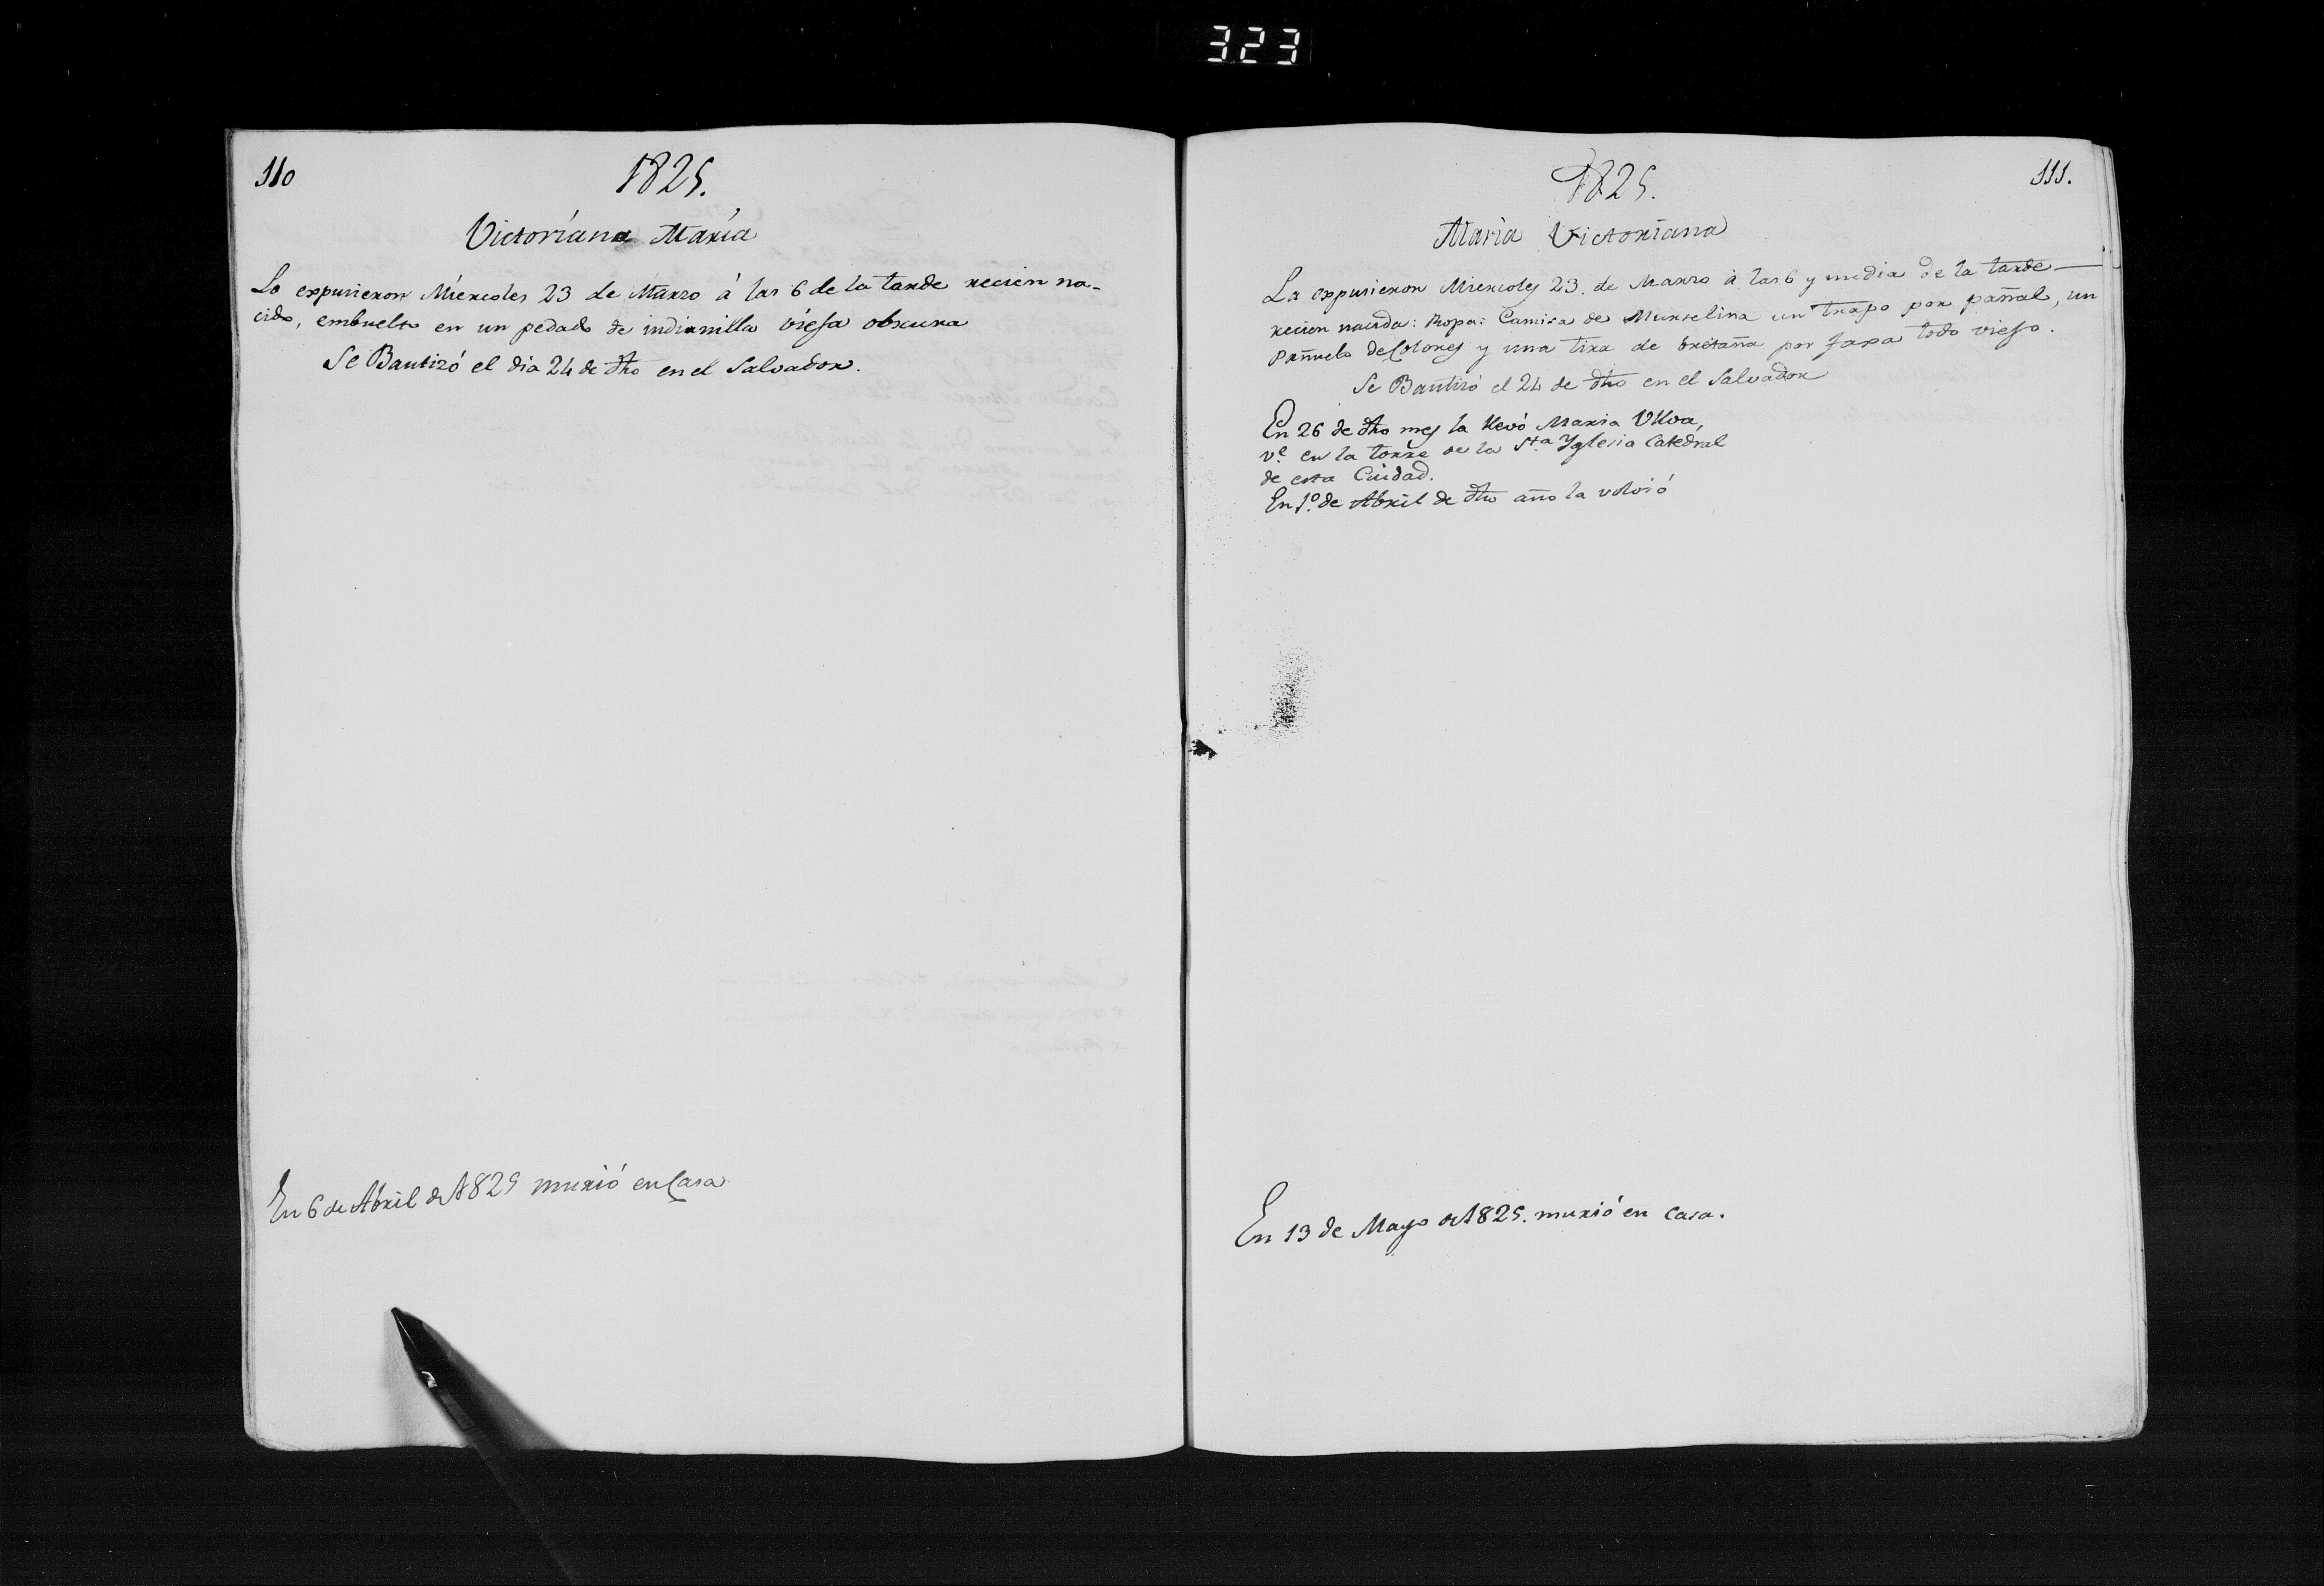 323
110
1825.
Victoriana María
Lo expusieron Miercoles 23 de Marzo à las 6 de la tarde recien na-
cido, embuelto en un pedado de indianilla viesa obscura
Se Bautizó el dia 24 de dho en el Salvador.
En 6 de Abril de 1825 murió en Casa
1825.
111.
Maria Victoriana
La expusieron Miercoles 23. de Marzo à las 6 y media de la tarde
recien nacida: Ropa: Camisa de Murselina un trapo por pañal, un
Pañuelo de Colores y una tira de bretaña por faxa todo viejo.
Se Bautizó el 24 de dho en el Salvador
En 26 de dho mes la llevó Maria Ulloa,
v.e en la torre de la Sta. Yglesia Catedral
de esta Ciudad.
En 1.º de Abril de dho año la volvió
En 13 de Mayo de 1825. murió en Casa.